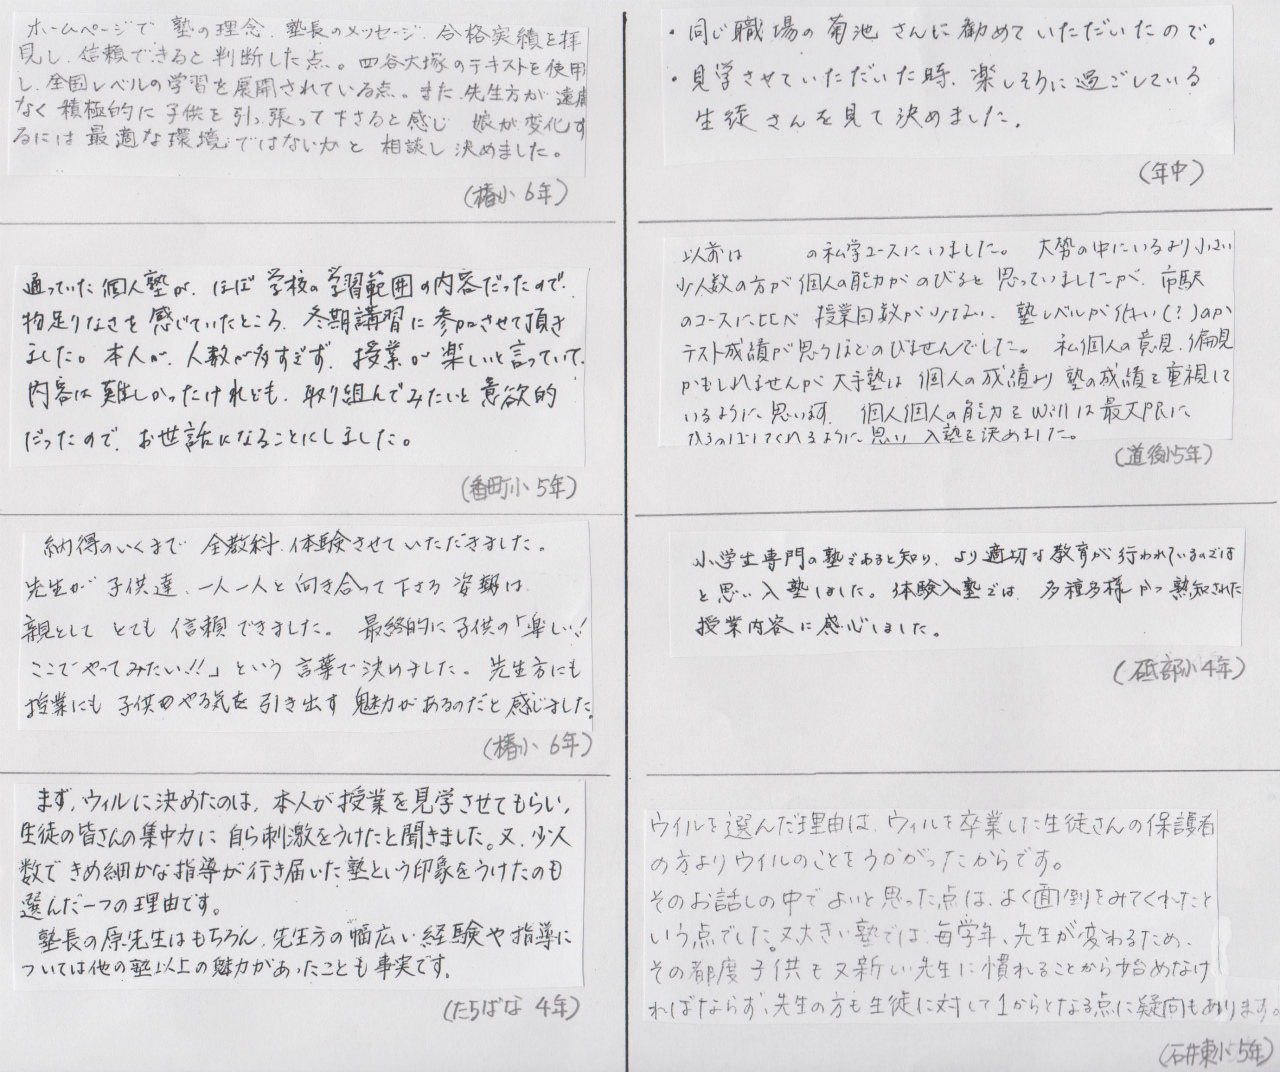 ホームページで、塾の理念、塾長のメッセージ、合格実績を拝
見し、信頼できると判断した点。四谷大塚のテキストを使用
し、全国レベルの学習を展開されている点。また、先生方が遠慮
なく積極的に子供を引っ張って下さると感じ 娘が変化す
るには最適な環境ではないかと相談し決めました。
(椿小 6年)
通っていた個人塾が、ほぼ学校の学習範囲の内容だったので、
物足りなさを感じていたところ、冬期講習に参加させて頂き
ました。本人が、人数が多すぎず、授業が楽しいと言っていて、
内容は難しかったけれども、取り組んでみたいと意欲的
だったので、お世話になることにしました。
(番町小 5年)
納得のいくまで 全教科、体験させていただきました。
先生が子供達、一人一人と向き合って下さる姿勢は、
親として とても 信頼できました。 最終的に子供の「楽しい!
ここでやってみたい!!」という言葉で決めました。先生方にも
授業にも子供のやる気を引き出す魅力があるのだと感じました。
(椿小 6年)
まず、ウィルに決めたのは、本人が授業を見学させてもらい、
生徒の皆さんの集中力に自ら刺激をうけたと聞きました。又、少人
数できめ細かな指導が行き届いた塾という印象をうけたのも
選んだ一つの理由です。
塾長の原先生はもちろん、先生方の幅広い経験や指導に
ついては他の塾以上の魅力があったことも事実です。
(たちばな 4年)
・同じ職場の菊池さんに勧めていただいたので。
・見学させていただいた時、楽しそうに過ごしている
生徒さんを見て決めました。
(年中)
以前は の私学コースにいました。 大勢の中にいるより小さい
少人数の方が個人の能力がのびると思っていましたが、市駅
のコースに比べ 授業日数が少ない、塾レベルが低い(?)のか
テスト成績が思うほどのびませんでした。 私個人の意見、偏見
かもしれませんが大手塾は個人の成績より塾の成績を重視して
いるように思います。 個人個人の能力をWillは最大限に
ひきのばしてくれるように思い 入塾を決めました。
(道後小5年)
小学生専門の塾であると知り、より適切な教育が行われているのでは
と思い入塾しました。体験入塾では、多種多様かつ熟知された
授業内容に感心しました。
(砥部小4年)
ウイルを選んだ理由は、ウィルを卒業した生徒さんの保護者
の方よりウイルのことをうかがったからです。
そのお話しの中でよいと思った点は、よく面倒をみてくれたと
いう点でした。又大きい塾では、毎学年、先生が変わるため、
その都度子供も又新しい先生に慣れることから始めなけ
ればならず、先生の方も生徒に対して1からとなる点に疑問もあります。
(石井東小 5年)